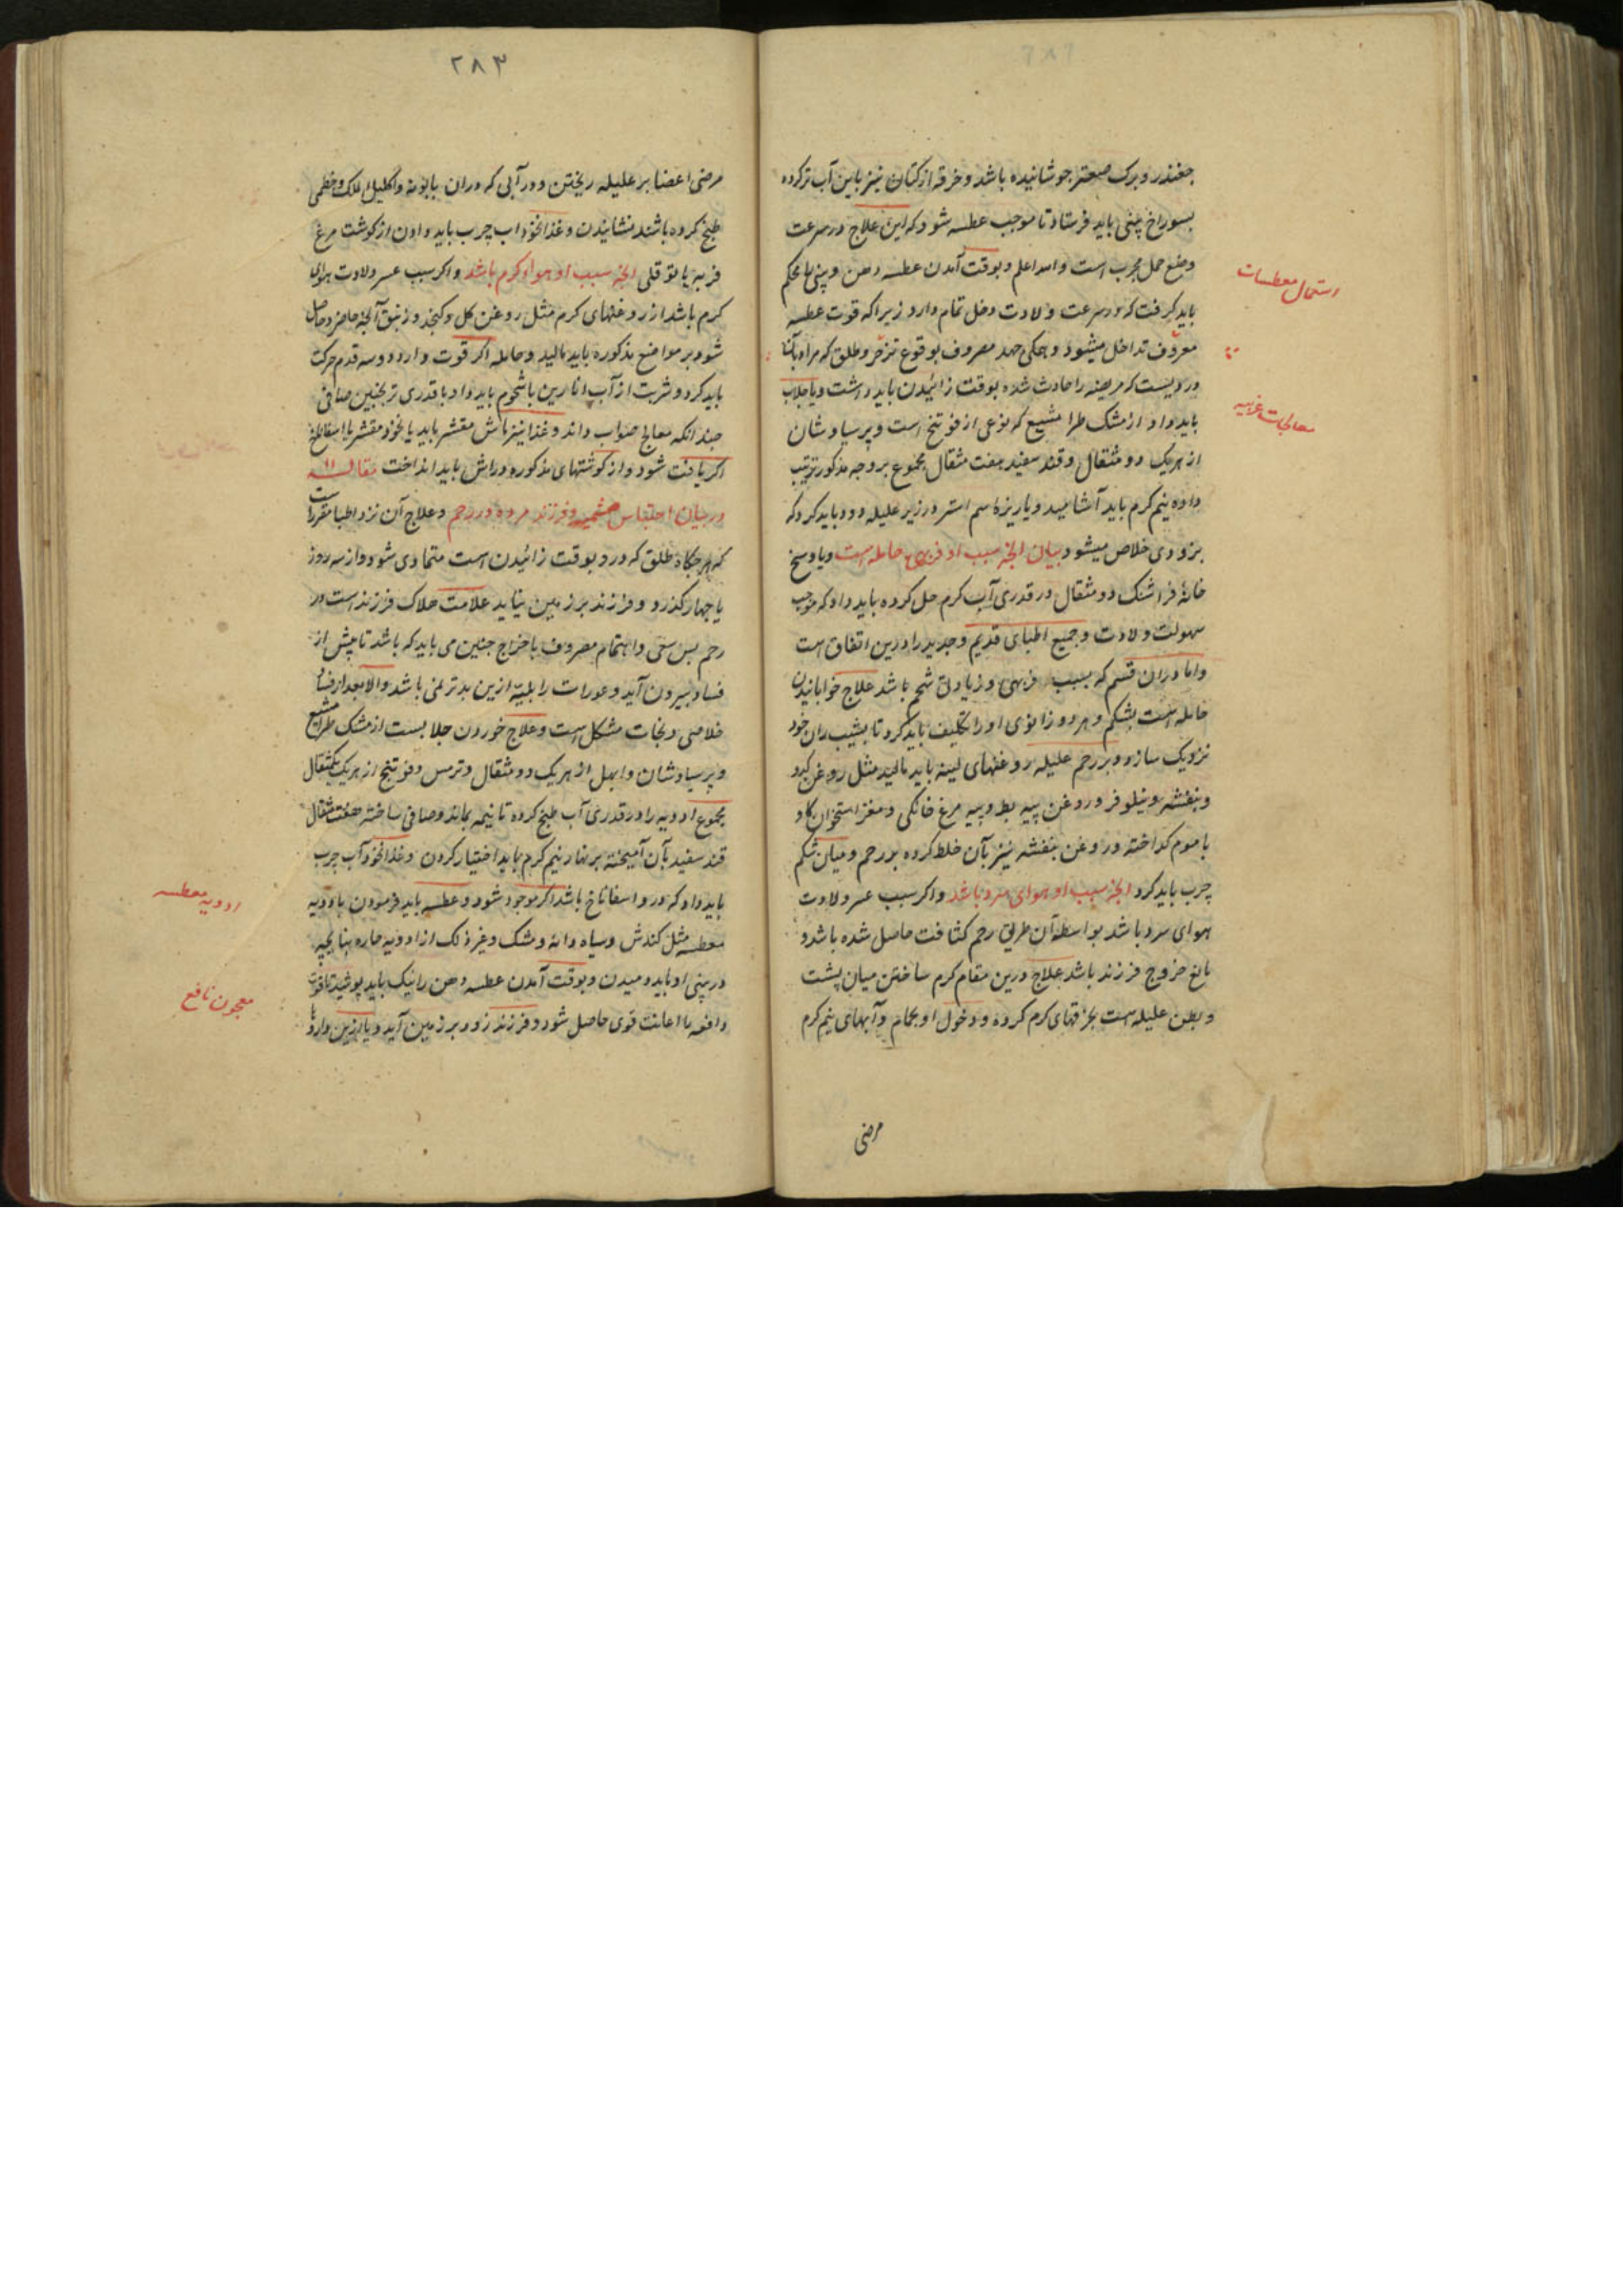 جغندر و برک صعتر جوشانیده باشد و خرقه از کتان نیز باین آب تر کرده
بسوراخ بینی باید فرستاد تا موجب عطسه شود که این علاج در سرعت
وضع حمل مجرب است و الله اعلم و بوقت آمدن عطسه دهن و بینی را محکم
باید کرفت که در سرعت ولادت دخل تمام دارد زیرا که قوت عطسه
معروف تداخل میشود و همکی جهد مصروف بوقوع تزحر و طلق که مراد بآن
دردیست که مریضه را حادث شده بوقت زائیدن باید داشت و یا جلاب
باید داد از مشک طرا مشیع که نوعی از فوتنج است و پرسیاوشان
از هریک دو مثقال و قند سفید هفت مثقال مجموع بر وجه مذکور ترتیب
داده نیم کرم باید آشامید و یا ریزه سم استر در زیر علیله دود باید کرد که
بزودی خلاص میشود بیان آنچه سبب او فربهی حامله است و یا وسخ
خانهٔ فراشتک دو مثقال در قدری آب کرم حل کرده باید داد که موجب
سهولت ولادت و جمیع اطبای قدیم و جدید را درین اتفاق است
و اما در آن قسم که بسبب فربهی و زیادتی شحم باشد علاج خوابانیدن
حامله است بشکم و هر دو زانوی او را تکلیف باید کرد تا بشیب ران خود
نزدیک سازد و بر رحم علیله روغنهای لینه باید مالید مثل روغن کدو
و بنفشه و نیلوفر و روغن پیه بط و پیه مرغ خانکی و مغز استخوان کاو
با موم کداخته و روغن بنفشه نیز بآن خلط کرده بر رحم و میان شکم
چرب باید کرد آنچه سبب او هوای سرد باشد و اکر سبب عسر ولادت
هوای سرد باشد بواسطه آن طریق رحم کثافت حاصل شده باشد و
مانع خروج فرزند باشد علاج درین مقام کرم ساختن میان پشت
و بطن علیله است بخرقهای کرم کرده و دخول او بحمام و آبهای نیم کرم
مرضی
استعمال معطسات
معالجات غریبه
۲۸۳
مرضی اعضا بر علیله ریختن و در آبی که در آن بابونه و اکلیل الملک و خطمی
طبخ کرده باشند نشانیدن و غذا نخوداب چرب باید دادن از کوشت مرغ
فربه یا نوقلی آنچه سبب او هواء کرم باشد و اکر سبب عسر ولادت هوای
کرم باشد از روغنهای کرم مثل روغن کل و کنجد و زنبق آنچه حاضر و حاصل
شود بر مواضع مذکوره باید مالید و حامله اکر قوت دارد دو سه قدم حرکت
باید کرد و شربت از آب انارین باشحوم باید داد با قدری ترنجبین صافی
چندانکه معالج صواب داند و غذا نیز ماش مقشر باید یا نخود مقشر با اسفاناخ
اکر یافت شود و از کوشتهای مذکوره در آش باید انداخت مقاله ۱۱
در بیان احتباس مشیمه و فرزند مرده در رحم و علاج آن نزد اطبا مقرر است
که هر جکاه طلق که درد بوقت زائیدن است متمادی شود و از سه روز
یا جهار کذرد و فرزند بر زمین نیاید علامت هلاک فرزند است در
رحم پس سعی و اهتمام مصروف باخراج جنین می باید که باشد تا پیش از
فساد بیرون آید و عورات را بلیهٔ ازین بدتر نمی باشد و الا بعد از فساد
خلاصی و نجات مشکل است و علاج خوردن جلابیست از مشک طرا مشیع
و پرسیاوشان و ابهل از هریک دو مثقال و ترمس و فوتنج از هریک یکمثقال
مجموع ادویه را در قدری آب طبخ کرده تا نیمه بماند و صافی ساخته هفت مثقال
قند سفید بآن آمیخته بر نهار نیم کرم باید اختیار کردن و غذا نخود آب چرب
باید داد که در و اسفاناخ باشد اکر موجود شود و عطسه باید فرمودن بادویه
معطسه مثل کندش و سیاه دانه و مشک و غیر ذلک از ادویه حاره بنایچه
در بینی او باید دمیدن و بوقت آمدن عطسه دهن را نیک باید پوشید تا قوت
دافعه با اعانت قوی حاصل شود و فرزند زود بر زمین آید و یا ازین دارو
ادویه معطسه
معجون نافع